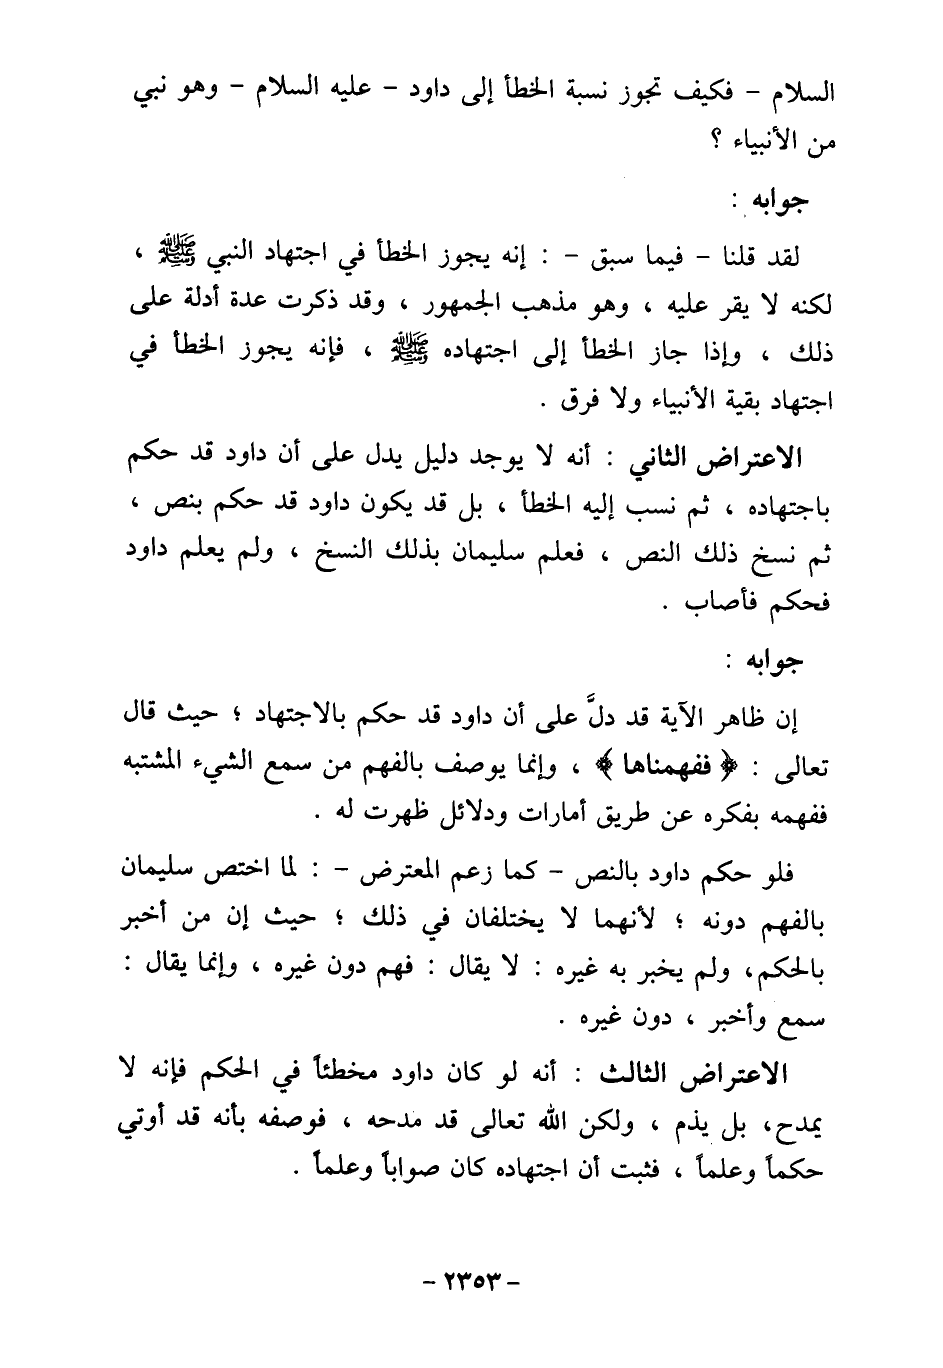 السلام – فكيف تجوز نسبة الخطأ إلى داود – عليه السلام – وهو نبي
من الأنبياء ؟
جوابه :
لقد قلنا – فيما سبق – : إنه يجوز الخطأ في اجتهاد النبي ﷺ ،
لكنه لا يقر عليه ، وهو مذهب الجمهور ، وقد ذكرت عدة أدلة على
ذلك ، وإذا جاز الخطأ إلى اجتهاده ﷺ ، فإنه يجوز الخطأ في
اجتهاد بقية الأنبياء ولا فرق .
الاعتراض الثاني : أنه لا يوجد دليل يدل على أن داود قد حكم
باجتهاده ، ثم نسب إليه الخطأ ، بل قد يكون داود قد حكم بنص ،
ثم نسخ ذلك النص ، فعلم سليمان بذلك النسخ ، ولم يعلم داود
فحكم فأصاب .
جوابه :
إن ظاهر الآية قد دلَّ على أن داود قد حكم بالاجتهاد ؛ حيث قال
تعالى : ﴿ ففهمناها ﴾ ، وإنما يوصف بالفهم من سمع الشيء المشتبه
ففهمه بفكره عن طريق أمارات ودلائل ظهرت له .
فلو حكم داود بالنص – كما زعم المعترض – : لما اختص سليمان
بالفهم دونه ؛ لأنهما لا يختلفان في ذلك ؛ حيث إن من أخبر
بالحكم، ولم يخبر به غيره : لا يقال : فهم دون غيره ، وإنما يقال :
سمع وأخبر ، دون غيره .
الاعتراض الثالث : أنه لو كان داود مخطئاً في الحكم فإنه لا
يمدح، بل يذم ، ولكن الله تعالى قد مدحه ، فوصفه بأنه قد أوتي
حكماً وعلماً ، فثبت أن اجتهاده كان صواباً وعلماً .
– ٢٣٥٣ –